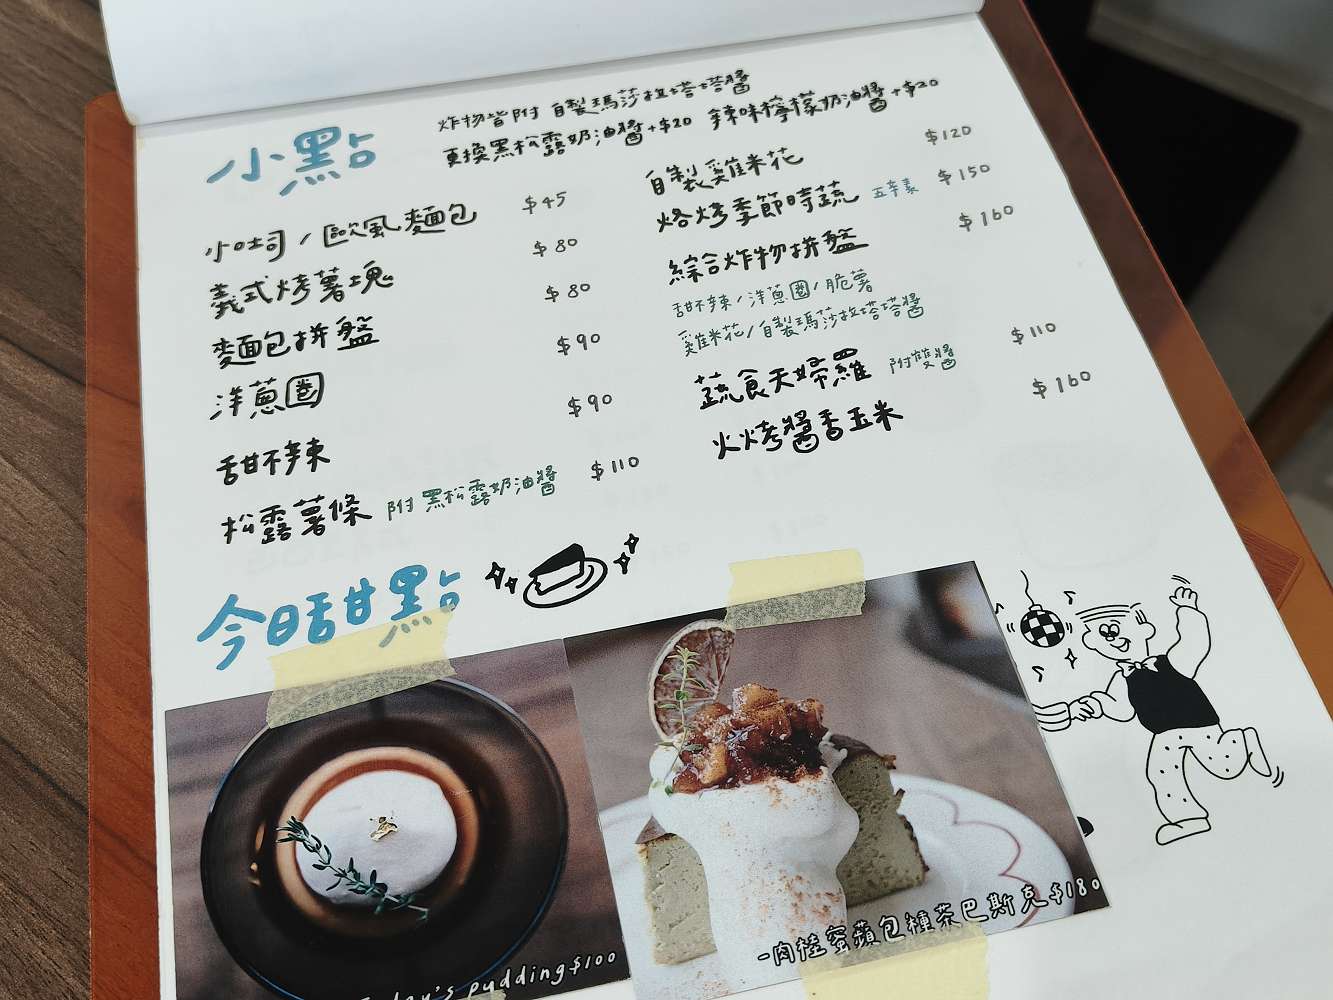 小點
炸物皆附 自製瑪莎拉塔塔醬
更換黑松露奶油醬+$20 辣味檸檬奶油醬+$20
小吐司/歐風麵包 $45
義式烤薯塊 $80
麵包拼盤 $80
洋蔥圈 $90
甜不辣 $90
松露薯條 附黑松露奶油醬 $110
自製雞米花 $120
烙烤季節時蔬 五辛素 $150
綜合炸物拼盤 $160
甜不辣/洋蔥圈/脆薯
雞米花/自製瑪莎拉塔塔醬
蔬食天婦羅 附雙醬 $110
火烤醬香玉米 $160
今日甜點
pudding$100
-肉桂蜜蘋包種茶巴斯克$180